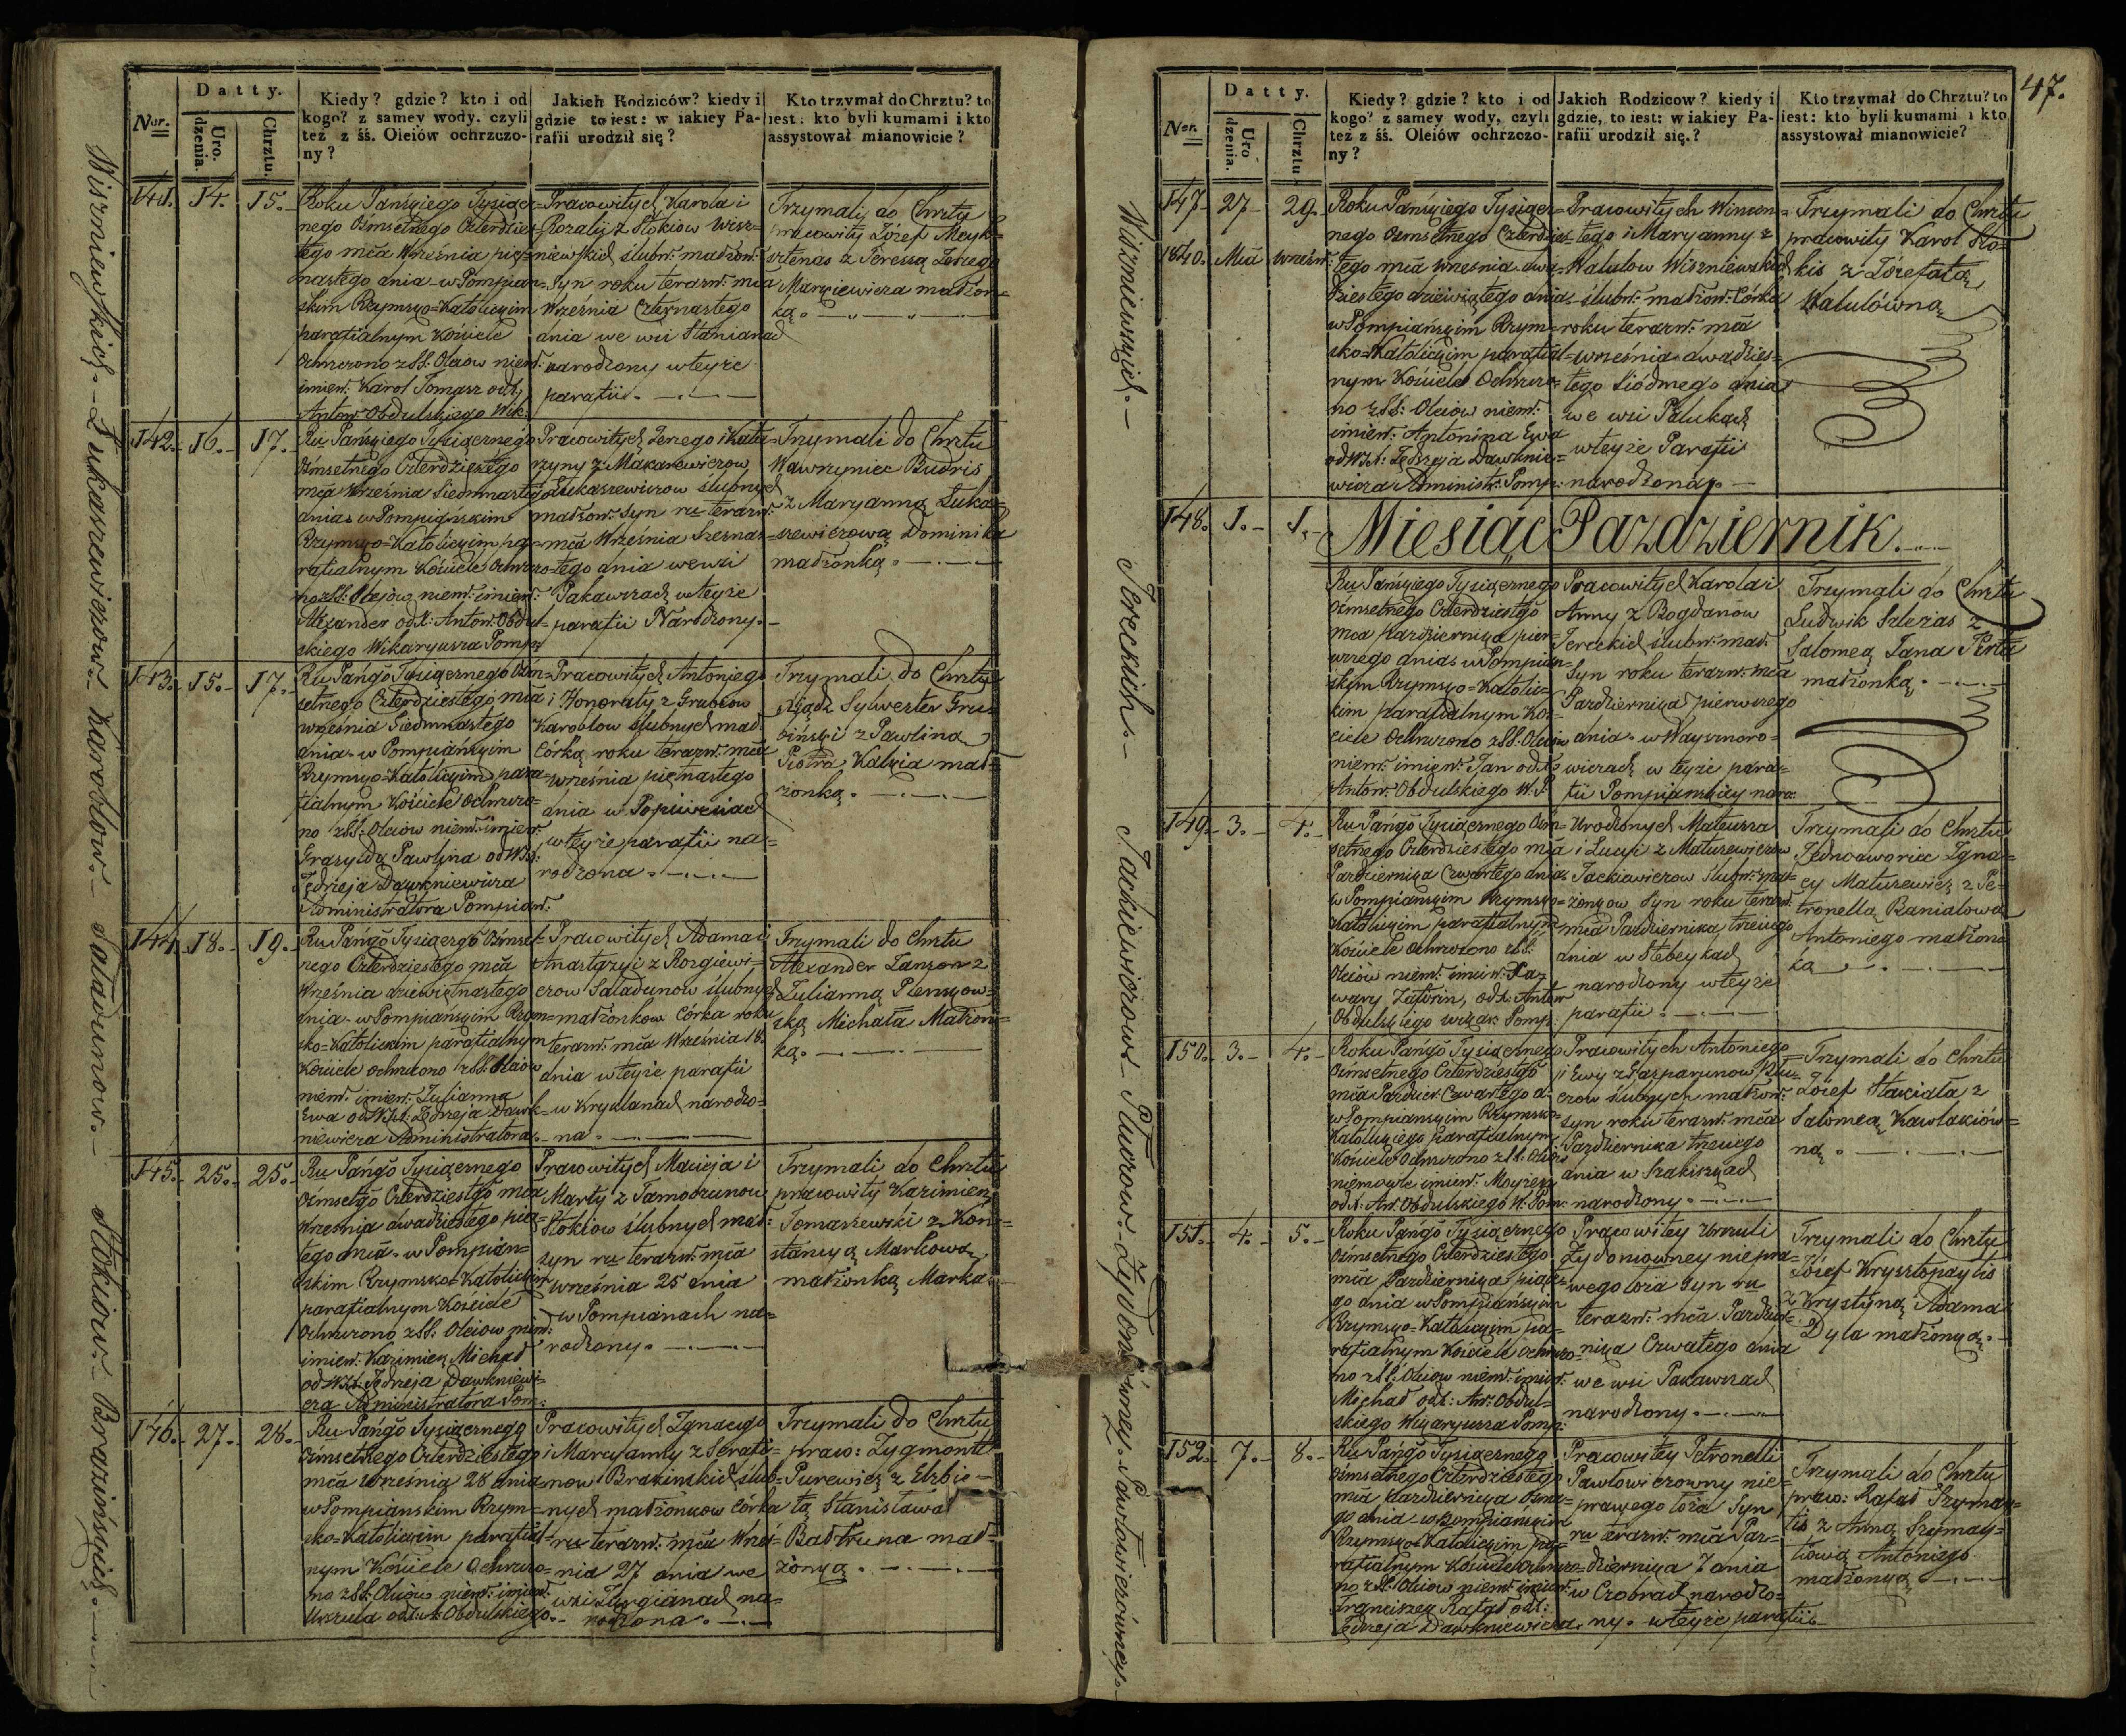 Datty.
Nur.
Uro.
dzenia.
Chrztu.
Kiedy? gdzie? kto i od
kogo? z samey wody, czyli
też z śś. Oleiów ochrzczo-
ny?
Jakich Rodziców? kiedy i
gdzie to iest: w iakiey Pa-
rafii urodził się?
Kto trzymał do Chrztu? to
iest: kto byli kumami i kto
assystował mianowicie?
Wiszniewskich.- Łukaszewiczow.- Karoblow.- Saladunow.- Stokiow.- Brazińskich.-
141. 14. 15.
Roku Pańskiego Tysiącz=
nego Ośmsetnego Czterdzies=
tego mca Września pięt=
nastego dnia w Pompiań=
skim Rzymsko=Katolickim
parafialnym Kościele
Ochrzczono z SS. Oleiow niem:
imien: Karol Tomasz od X.
Anton: Obdulskiego Wik:
Pracowitych Karola i
Rozalij z Stokiow Wisz=
niewskich ślubn: małżon:
Syn roku teraz: mca
Września Czternastego
dnia we wsi Staniunach
narodzony w teyże
parafii.
Trzymali do Chrztu
pracowity Józef Meyk=
sztenas z Teressą Jerzego
Marcinkiewicza małżon=
ką.
142. 16. 17.
Ru Pańskiego Tysiącznego
Ośmsetnego Czterdziestego
mca Września Siedmnastego
dnia w Pompiańskim
Rzymsko=Katolickim pa=
rafialnym Kościele Ochrzczo=
no z SS. Oleiow niem: imien:
Alexander od X. Anton: Obdul=
skiego Wikaryusza Pomp:
Pracowitych Jerzego i Kata=
rzyny z Makarewiczow
Łukaszewiczow ślubnych
małżon: Syn ru teraz:
mca Września Szesnas=
tego dnia we wsi
Pakawszach w teyże
parafii Narodzony.
Trzymali do Chrztu
Wawrzyniec Budris
z Maryanną Łuka=
szewiczową Dominika
małżonką.
143. 15. 17.
Ru Pańgo Tysiącznego Ośm=
setnego Czterdziestego mca
września Siedmnastego
dnia w Pompiańskim
Rzymsko=Katolickim para=
fialnym Kościele Ochrzczo=
no z SS. Oleiów niem: imien:
Grazylda Pawlina od WX:
Jędrzeja Dawkniewicza
Administratora Pompiań:
Pracowitych Antoniego
i Honoraty z Grubiow
Karoblow ślubnych mał:
Córką roku teraz: mca
września piętnastego
dnia w Popiwesiach
w teyże parafii na=
rodzona.
Trzymali do Chrztu
Xiądz Sylwester Gru=
biński z Pawliną
Piotra Kalwia mał=
żonką.
144. 18. 19.
Ru Pańgo Tysiączgo Ośmset=
nego Czterdziestego mca
Września dziewiętnastego
dnia w Pompiańskim Rzym=
sko=Katolickim parafialnym
Kościele ochrzczono z SS. Oleiów
niem: imien: Julianna
Ewa od WX: Jędrzeja Dawk=
niewicza Administratora.
Pracowitych Adama i
Anastazyi z Rozgiewi=
czow Saladunow ślubnych
małżonkow Córka roku
teraz: mca Września 18.
dnia w teyże parafii
w Kryklanach narodzo=
na.
Trzymali do Chrztu
Alexander Janson z
Julianną Plenskow=
ską Michała Małżon=
ką.
145. 25. 25.
Ru Pańgo Tysiącznego
Ośmsetgo Czterdziestgo mca
Września dwadziestego pią=
tego dnia w Pompiań=
skim Rzymsko=Katolickim
parafialnym Kościele
Ochrzczono z SS. Oleiow niem:
imien: Kazimierz Michał
od WX. Jędrzeja Dawkniewi=
cza Administratora Pom:
Pracowitych Macieja i
Marty z Tamoszunow
Stokiow ślubnych mał:
syn ru teraz: mca
września 25 dnia
w Pompianach na=
rodzony.
Trzymali do Chrztu
pracowity Kazimierz
Tomaszewski z Kon=
stancyą Markową
małżonką Marka.
146. 27. 28.
Ru Pańgo Tysiącznego
Ośmsetnego Czterdziestego
mca Września 28 dnia
w Pompianskim Rzym=
sko=Katolickim parafial=
nym Kościele Ochrzczo=
no z SS. Oleiow niem: imien:
Urszula od X. A. Obdulskiego.
Pracowitych Ignacego
i Maryanny z Serafi=
now Brazinskich ślub=
nych małżonkow Córka
ru teraz: mca Wrze=
nia 27 dnia we
wsi Jurgianach na=
rodzona.
Trzymali do Chrztu
praco: Zygmont
Purewicz z Elzbie=
tą Stanisława
Baltruna mał=
żonką.
47.
Datty.
Nur.
Uro
dzenia.
Chrztu.
Kiedy? gdzie? kto i od
kogo? z samey wody, czyli
też z śś. Oleiów ochrzczo-
ny?
Jakich Rodzicow? kiedy i
gdzie, to iest: w iakiey Pa-
rafii urodził się.?
Kto trzymał do Chrztu? to
iest: kto byli kumami i kto
assystował mianowicie?
Wiszniewskich.- Tereckich.- Jackiewiczow.- Żydoniówney.- Pawłowiczówney.-
147. 27. 29.
1840. Mca wrześn:
Roku Pańskiego Tysiącz=
nego Ośmsetnego Czterdzies=
tego mca wrzesnia dwa=
dziestego dziewiątego dnia
w Pompiańskim Rzym=
sko=Katolickim parafial=
nym Kościele Ochrzczo=
no z SS: Oleiów niem:
imien: Antonina Ewa
od WX: Jędrzeja Dawknie=
wicza Administ: Pomp:
Pracowitych Wincen=
tego i Maryanny z
Kalulow Wiszniewskich
ślubn: małżon: Córka
roku teraz: mca
września dwadzies=
tego siódmego dnia
we wsi Palukach
w teyże Parafii
narodzona.
Trzymali do Chrztu
pracowity Karol Sto=
kis z Józefatą
Kalulówną
148. 1. 1.
Miesiąc Pazdziernik.
Ru Pańskiego Tysiącznego
Ośmsetnego Czterdziestgo
mca pazdziernika pier=
wszego dnia w Pompiań=
skim Rzymsko=Katolic=
kim parafialnym Ko=
ściele Ochrzczono z SS. Oleiow
niem: imien: Jan od X.
Anton: Obdulskiego W. P.
Pracowitych Karola i
Anny z Bogdanow
Tereckich ślubn: mał:
Syn roku teraz: mca
Pazdziernika pierwszego
dnia w Wayszmoro=
wiczach w teyże para=
fii Pompianskiey naro:
Trzymali do Chrztu
Ludwik Szlezas z
Salomeą Jana
małżonką.
149. 3. 4.
Ru Pańgo Tysiącznego Ośm=
setnego Czterdziestego mca
Pazdziernika Czwartego dnia
w Pompianskim Rzymsko=
Katolickim parafialnym
Kościele ochrzczono z SS:
Oleiów niem: imien: Xa=
wery od X. Anton:
Obdulskiego wikar: Pomp:
Urodzonych Mateusza
i Lucyi z Matusewiczow
Jackiewiczow ślubn: mał=
żonkow Syn roku teraz:
mca Pazdziernika trzeciego
dnia w Stebeykach
narodzony w teyże
parafii.
Trzymali do Chrztu
Jednodworiec Igna=
cy Matusewicz z Pe=
tronellą Banialową
Antoniego małżon=
ką
150. 3. 4.
Roku Pańgo Tysiącznego
Ośmsetnego Czterdziestgo
mca Pazdzier: Czwartego d.
w Pompianskim Rzymsko=
Katolickiego parafialnym
Kościele Ochrzczono z SS. Oleiow
niemowle imien: Moyzesz
od X. An. Obdulskiego W. Pom:
Pracowitych Antoniego
i Ewy z Kasparunow
ślubnych małżon:
syn roku teraz: mca
Pazdziernika trzeciego
dnia w Szakiszkach
narodzony.
Trzymali do Chrztu
Józef Stakiała z
Salomeą Kawlakiów=
ną.
151. 4. 5.
Roku Pańgo Tysiącznego
Ośmsetnego Czterdziestego
mca Pazdziernika piąte=
go dnia w Pompiańskim
Rzymsko=Katolickim pa=
rafialnym Kościele Ochrzczo=
no z SS. Oleiow niem: imien:
Michał od X: An: Obdul=
skiego Wikaryusza Pomp:
Pracowitey Urszuli
Żydoniowney niepra=
wego łoża Syn ru
teraz: mca Pazdzier=
nika Czwatego dnia
we wsi Pakawszach
narodzony.
Trzymali do Chrztu
Józef Krysztopaytis
z Krystyną Adama
Dyla małżonką.
152. 7. 8.
Ru Pańgo Tysiącznego
Ośmsetnego Czterdziestego
mca Pazdziernika Osme=
go dnia w Pompianskim
Rzymsko=Katolickim pa=
rafialnym Kościele Ochrzczo=
no z SS. Oleiow niem: imien:
Franciszek Rafał od X:
Jędrzeja Dawkniewicza.
Pracowitey Petronelli
Pawłowiczowny nie=
prawego łoża Syn
ru teraz: mca Paz=
dziernika 7 dnia
w Czobrach narodzo=
ny w teyże parafii.
Trzymali do Chrztu
praco: Rafał Szymay=
tis z Anną Szymay=
tiową Antoniego
małżonką